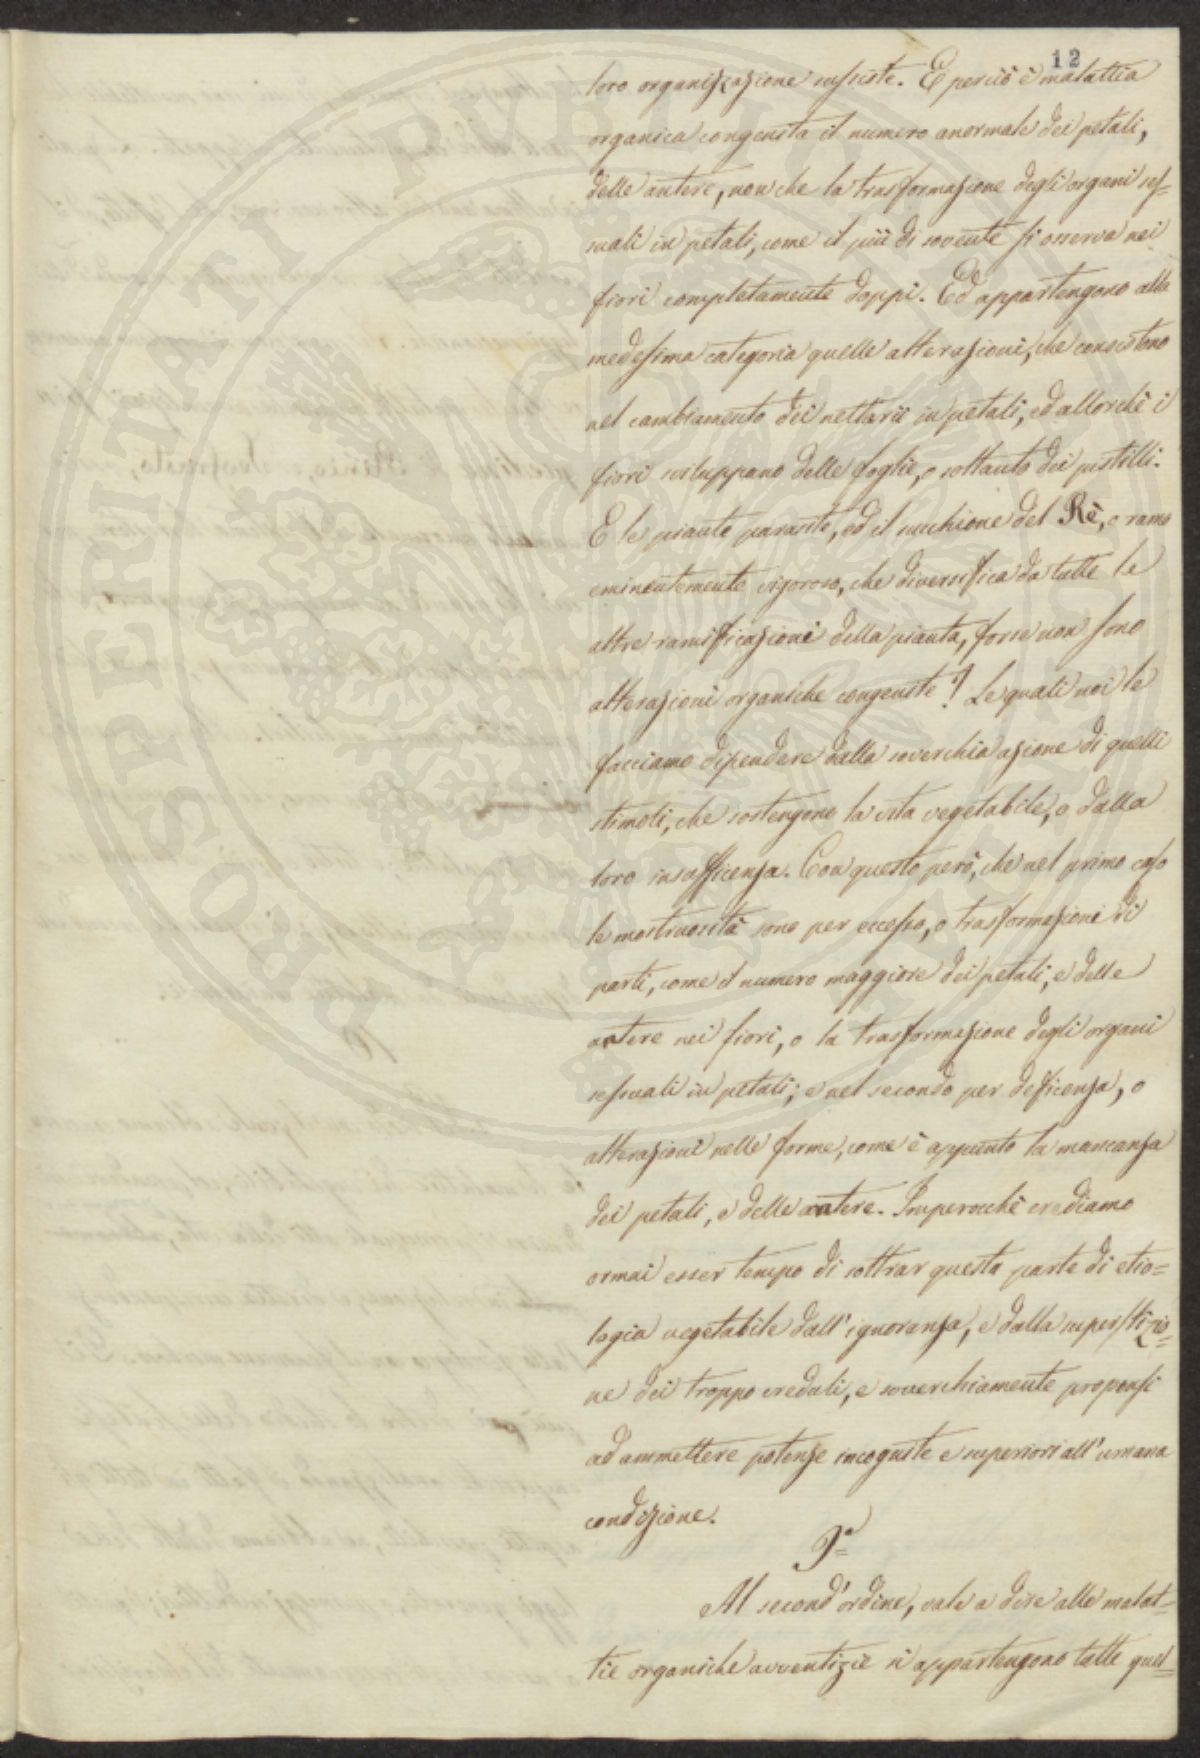 12
loro organizzazione sussiste. E perciò è malattia
organica congenita il numero anormale dei petali,
delle antere, non che la trasformazione degli organi ses=
suali in petali, come il più di sovente si osserva nei
fiori completamente doppi. Ed appartengono alla
medesima categoria quelle alterazioni, che consistono
nel cambiamento dei nettarii in petali, ed allorchè i
fiori sviluppano delle foglie, o soltanto dei pistilli.
E le piante parasite, ed il succhione del Rè, o ramo
eminentemente vigoroso, che diversifica da tutte le
altre ramificazioni della pianta, forse non sono
alterazioni organiche congenite? Le quali noi le
facciamo dipendere dalla soverchia azione di quelli
stimoli, che sostengono la vita vegetabile, o dalla
loro insufficenza. Con questo però, che nel primo caso
le mostruosità sono per eccesso, o trasformazioni di
parti, come il numero maggiore dei petali, e delle
antere nei fiori, o la trasformazione degli organi
sessuali in petali; e nel secondo per deficenza, o
alterazioni nelle forme, come è appunto la mancanza
dei petali, e delle antere. Imperocchè crediamo
ormai esser tempo di sottrar questa parte di etio=
logia vegetabile dall'ignoranza, e dalla superstizio=
ne dei troppo creduli, e soverchiamente propensi
ad ammettere potenze incognite e superiori all'umana
condizione.
Al second'ordine, vale a dire alle malat=
tie organiche avventizie vi appartengono tutte quel=
PROSPERITATI PVBLICAE